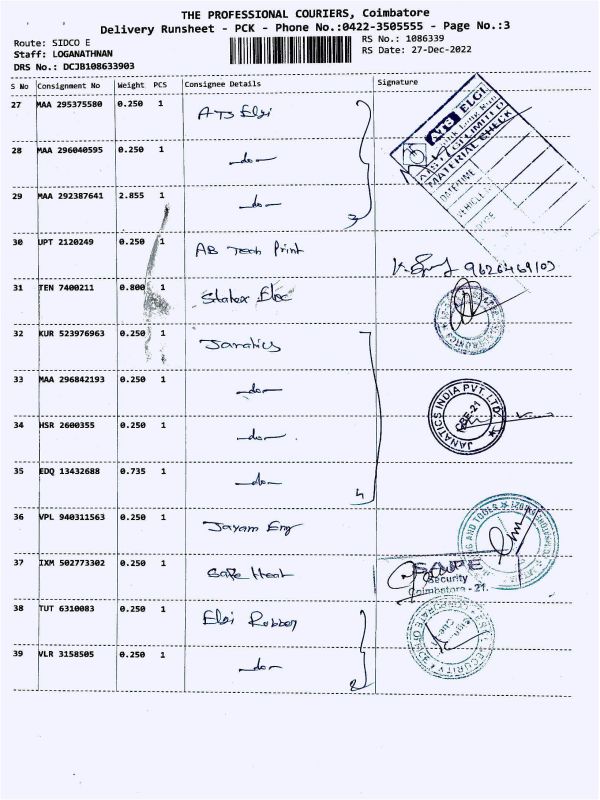 THE PROFESSIONAL COURIERS, Coimbatore
Delivery Runsheet - PCK - Phone No.:0422-3505555 - Page No.:3
Route: SIDCO E
RS No.: 1086339
Staff: LOGANATHNAN
RS Date: 27-Dec-2022
DRS No.: DCJB108633903
S No Consignment No Weight PCS Consignee Details Signature
27 MAA 295375580 0.250 1 ATS Elgi
28 MAA 296040595 0.250 1 -do-
29 MAA 292387641 2.855 1 -do-
3
ATS ELGI
MATERIAL CHECK
DATE/TIME
VEHICLE
30 UPT 2120249 0.250 1 AB Tech Print
9626469103
31 TEN 7400211 0.800 1 Statex Elec
32 KUR 523976963 0.250 1 Janatics
33 MAA 296842193 0.250 1 -do-
34 HSR 2600355 0.250 1 -do-
JANATICS INDIA PVT. LTD.
CBE-21
35 EDQ 13432688 0.735 1 -do-
4
36 VPL 940311563 0.250 1 Jayam Eng
AND TOOLS
37 IXM 502773302 0.250 1 Safe Heat
Security
Coimbatore - 21.
38 TUT 6310083 0.250 1 Elgi Rubber
39 VLR 3158505 0.250 1 -do-
2
SECURITY